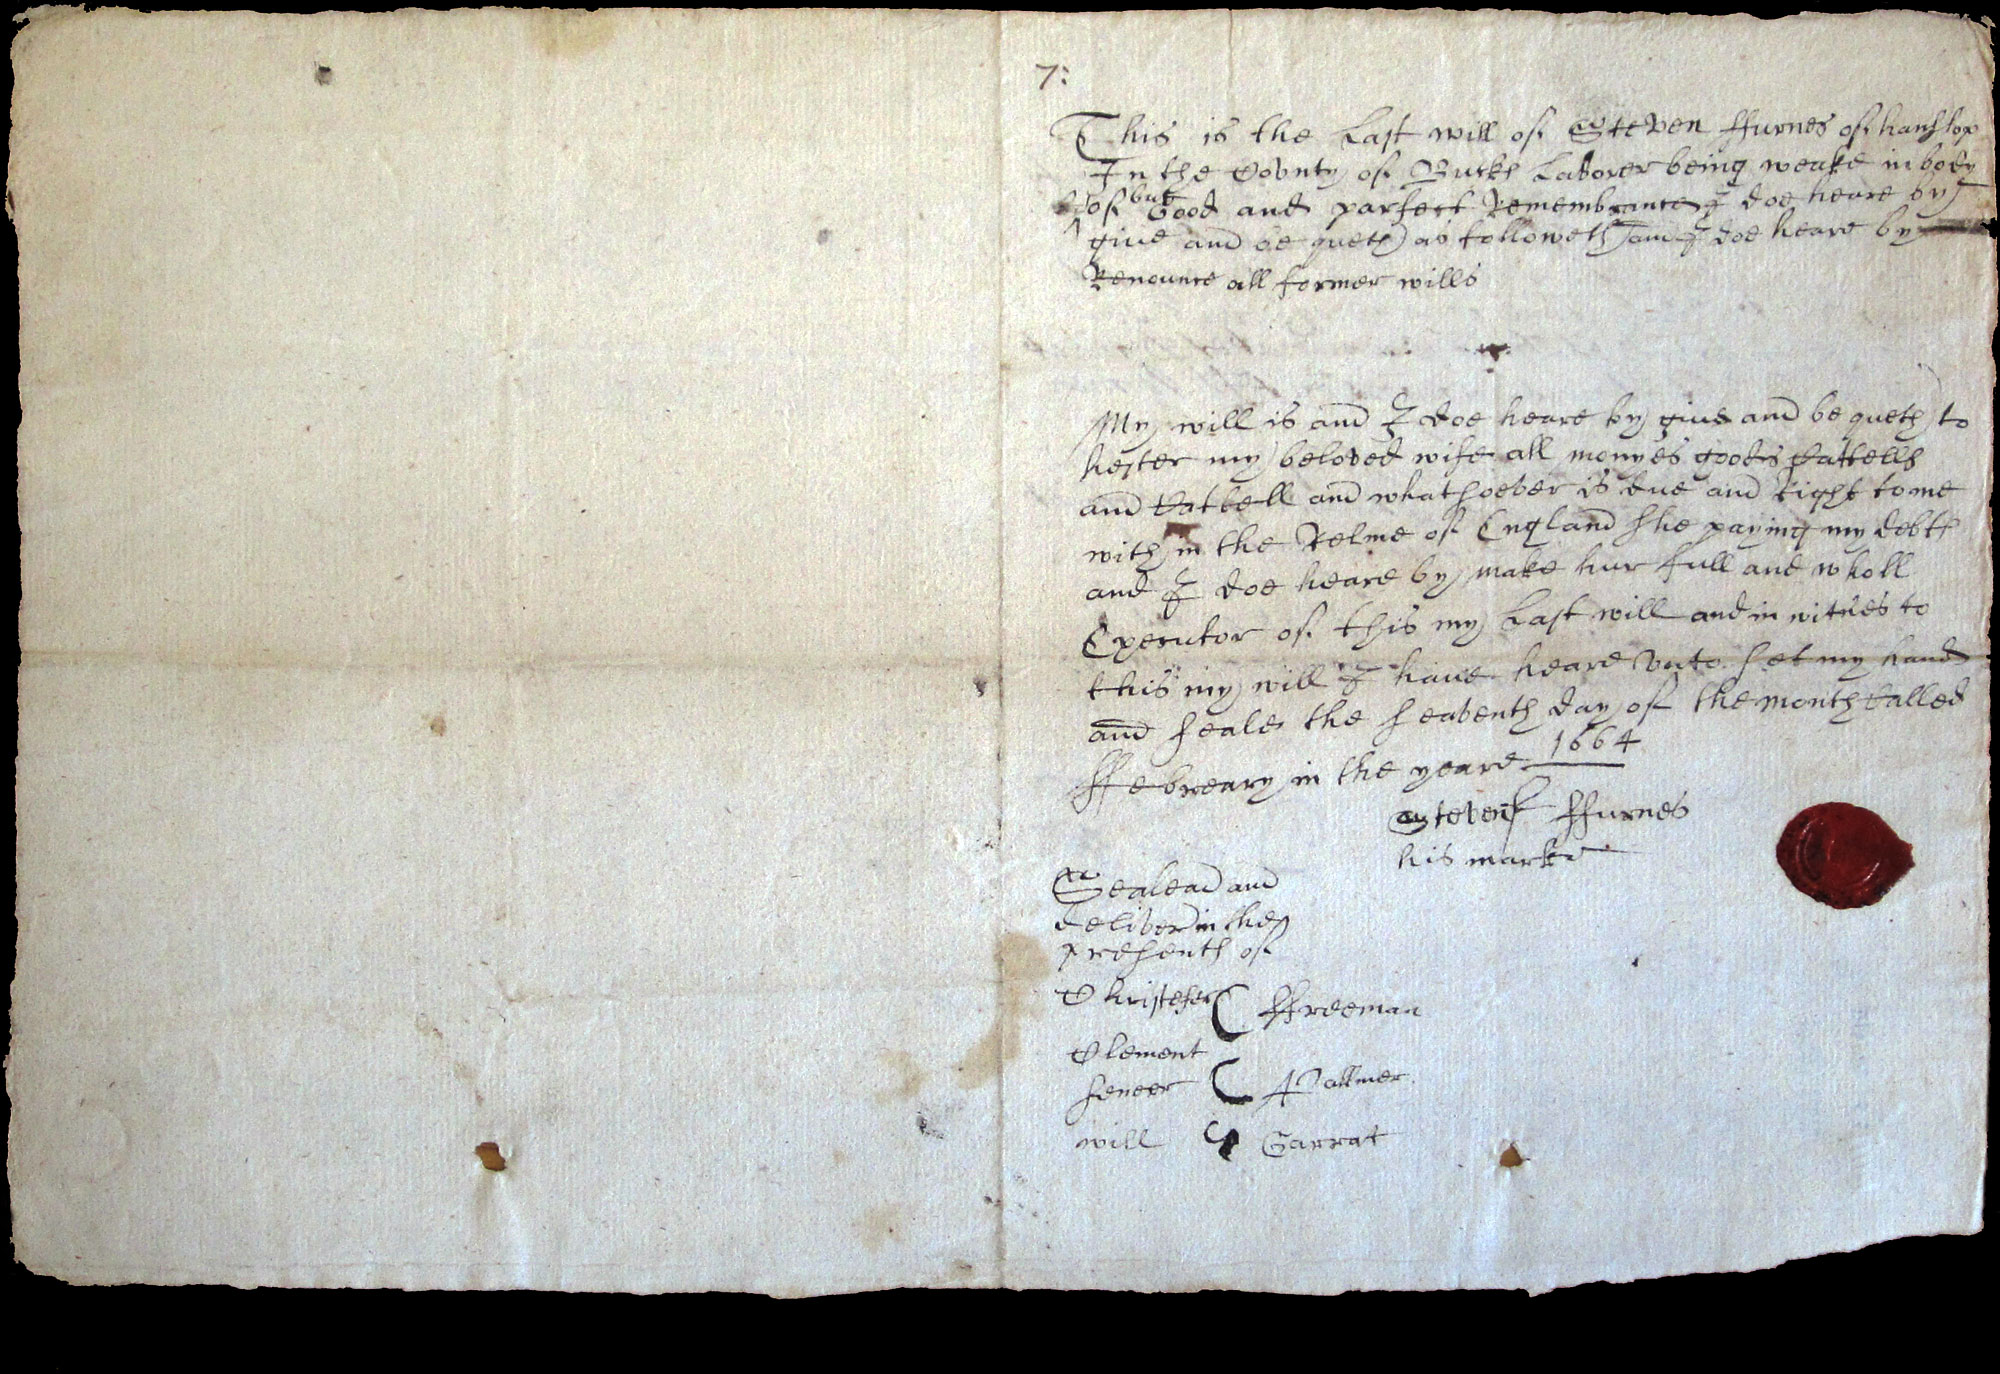 7:
This is the Last will of Steven ffurnes of hanslop
In the County of Bucks Laborer being weake in body
but
of Good and parfect Remembrance I doe heare by
give and be queth as followeth and I doe heare by
Renounce all former wills
My will is and I doe heare by give and be queth to
hester my beloved wife all monyes goods Cattells
and Cattell and whatsoever is due and Right to me
with in the Relme of England she paying my debts
and I doe heare by make hur full and wholl
Executor of this my Last will and in witnes to
this my will I have heare vnto set my hand
and seale the seaventh day of the month Called
ffebreary in the yeare 1664
Steven ffurnes
his marke
Sealead and
deliverd in the
presents of
Christefer ffreeman
Clement
sener Pallmer
will Garrat